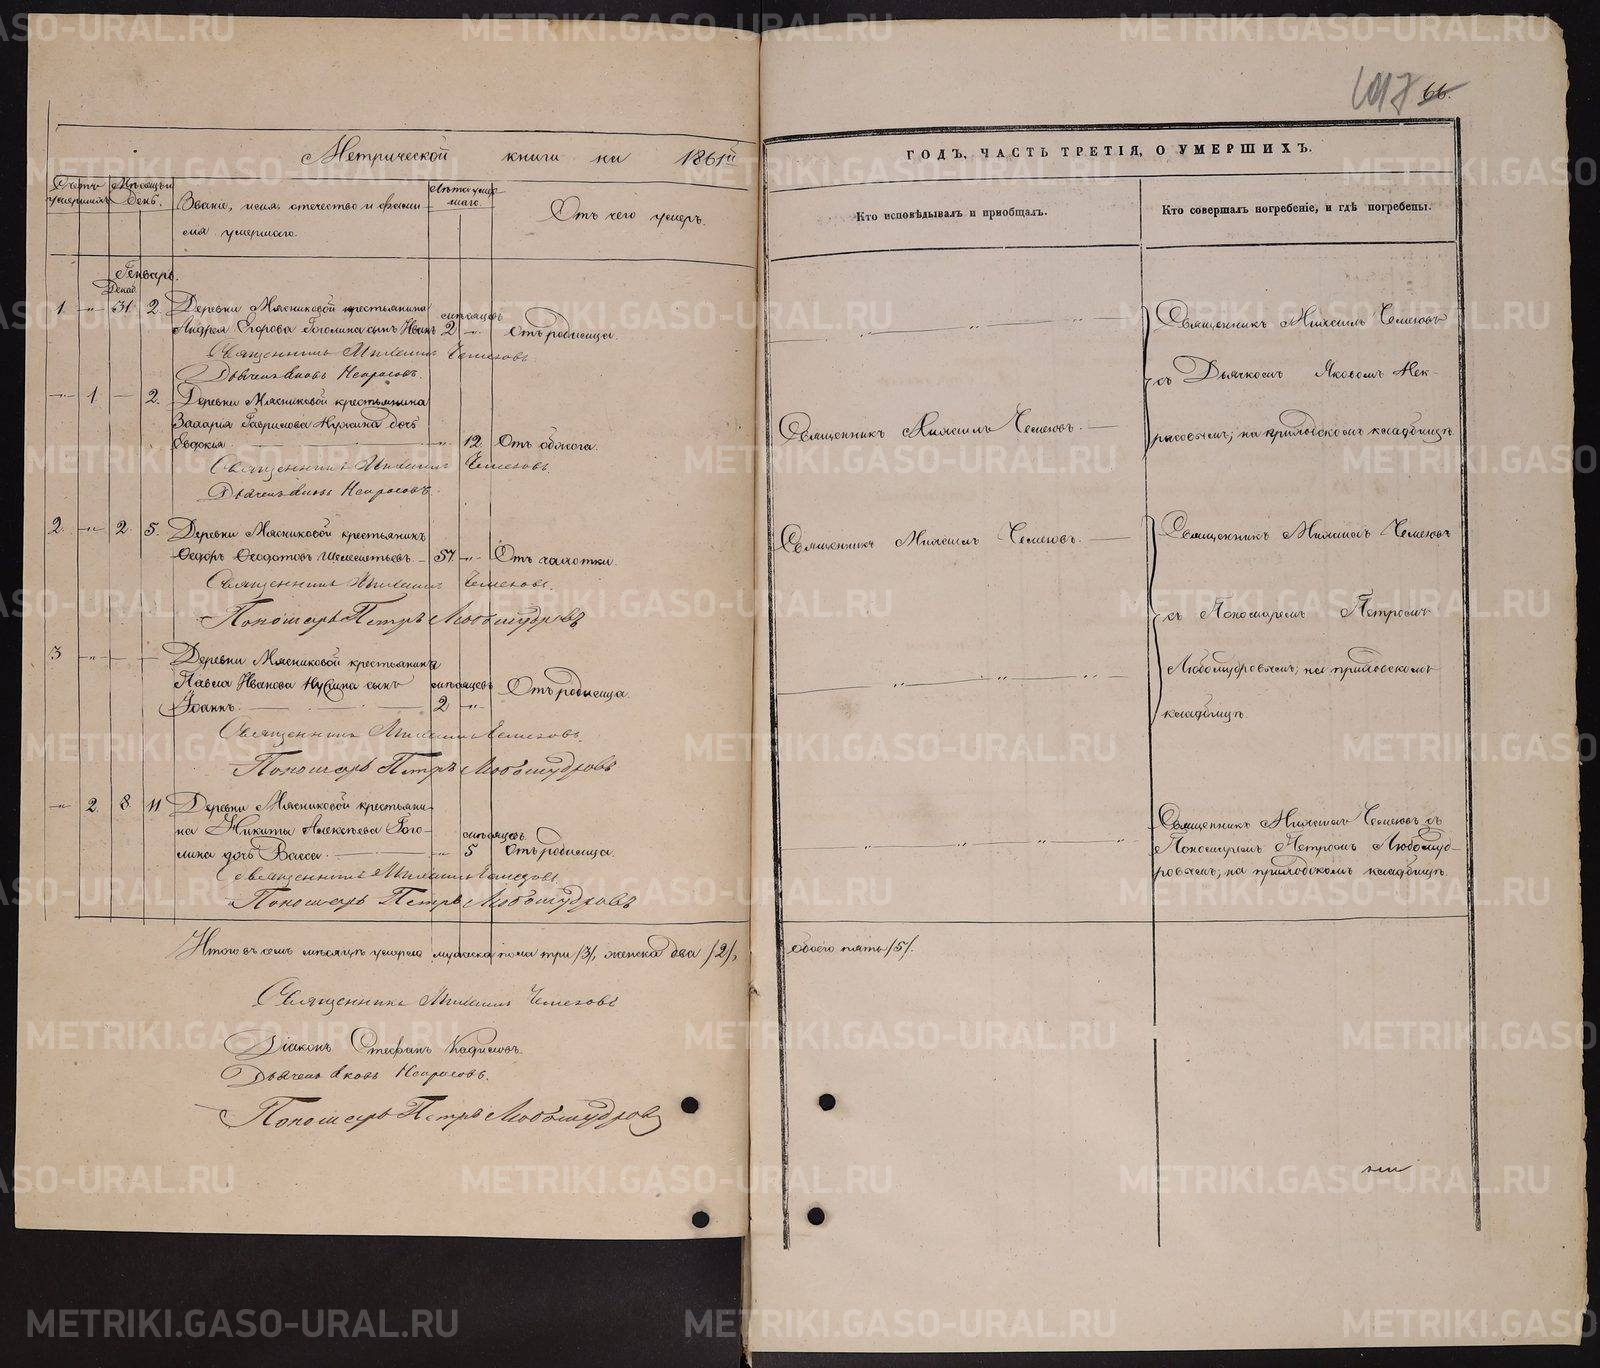 Метрической книги на 1861й
ГОДЪ, ЧАСТЬ ТРЕТІЯ, О УМЕРШИХЪ.
66.
Счетъ умершихъ.
Мѣсяцъ и день.
Званіе, имя, отечество и фамилія умершаго.
Лѣта умершаго.
Отъ чего умеръ.
Кто исповѣдывалъ и пріобщалъ.
Кто совершалъ погребеніе, и гдѣ погребены.
Генварь.
Декаб.
1 -"- 31 2. Деревни Мясниковой крестьянина
Андрея Егорова Гоголина сынъ Иванъ
мѣсяцовъ 2 -"- Отъ родимца.
Священникъ Михаилъ Чемезовъ.
Дьячекъ Яковъ Некрасовъ.
Священникъ Михаилъ Чемезовъ
съ Дьячкомъ Яковомъ Нек-
расовымъ; на приходскомъ кладбищѣ.
-"- 1. — 2. Деревни Мясниковой крестьянина
Захарія Гаврилова дочь
Евдокія -"- 12. Отъ обжога.
Священникъ Михаилъ Чемезовъ.
Дьячекъ Яковъ Некрасовъ.
Священникъ Михаилъ Чемезовъ.
2. -"- 2 5. Деревни Мясниковой крестьянинъ
Ѳедоръ Ѳедотовъ 57 -"- Отъ чахотки.
Священникъ Михаилъ Чемезовъ.
Пономарь Петръ Любомудровъ
Священникъ Михаилъ Чемезовъ.
Священникъ Михаилъ Чемезовъ
съ Пономаремъ Петромъ
Любомудровымъ; на приходскомъ
кладбищѣ.
3 -"- — — Деревни Мясниковой крестьянина
Павла Иванова сынъ мѣсяцовъ Отъ родимца.
Іоаннъ. 2 -"-
Священникъ Михаилъ Чемезовъ.
Пономарь Петръ Любомудровъ
-"- 2 8. 11 Деревни Мясниковой крестьяни-
на Никиты Алексѣева Гого- мѣсяцовъ.
лина дочь Васса. -"- 5 Отъ родимца.
Священникъ Михаилъ Чемезовъ.
Пономарь Петръ Любомудровъ
Священникъ Михаилъ Чемезовъ съ
Пономаремъ Петромъ Любомуд-
ровымъ; на приходскомъ кладбищѣ.
Итого въ семъ мѣсяцѣ умерло мужеска пола три /3/, женска два /2/, обоего пять /5/.
Священникъ Михаилъ Чемезовъ
Діаконъ Стефанъ
Дьячекъ Яковъ Некрасовъ.
Пономарь Петръ Любомудровъ
METRIKI.GASO-URAL.RU